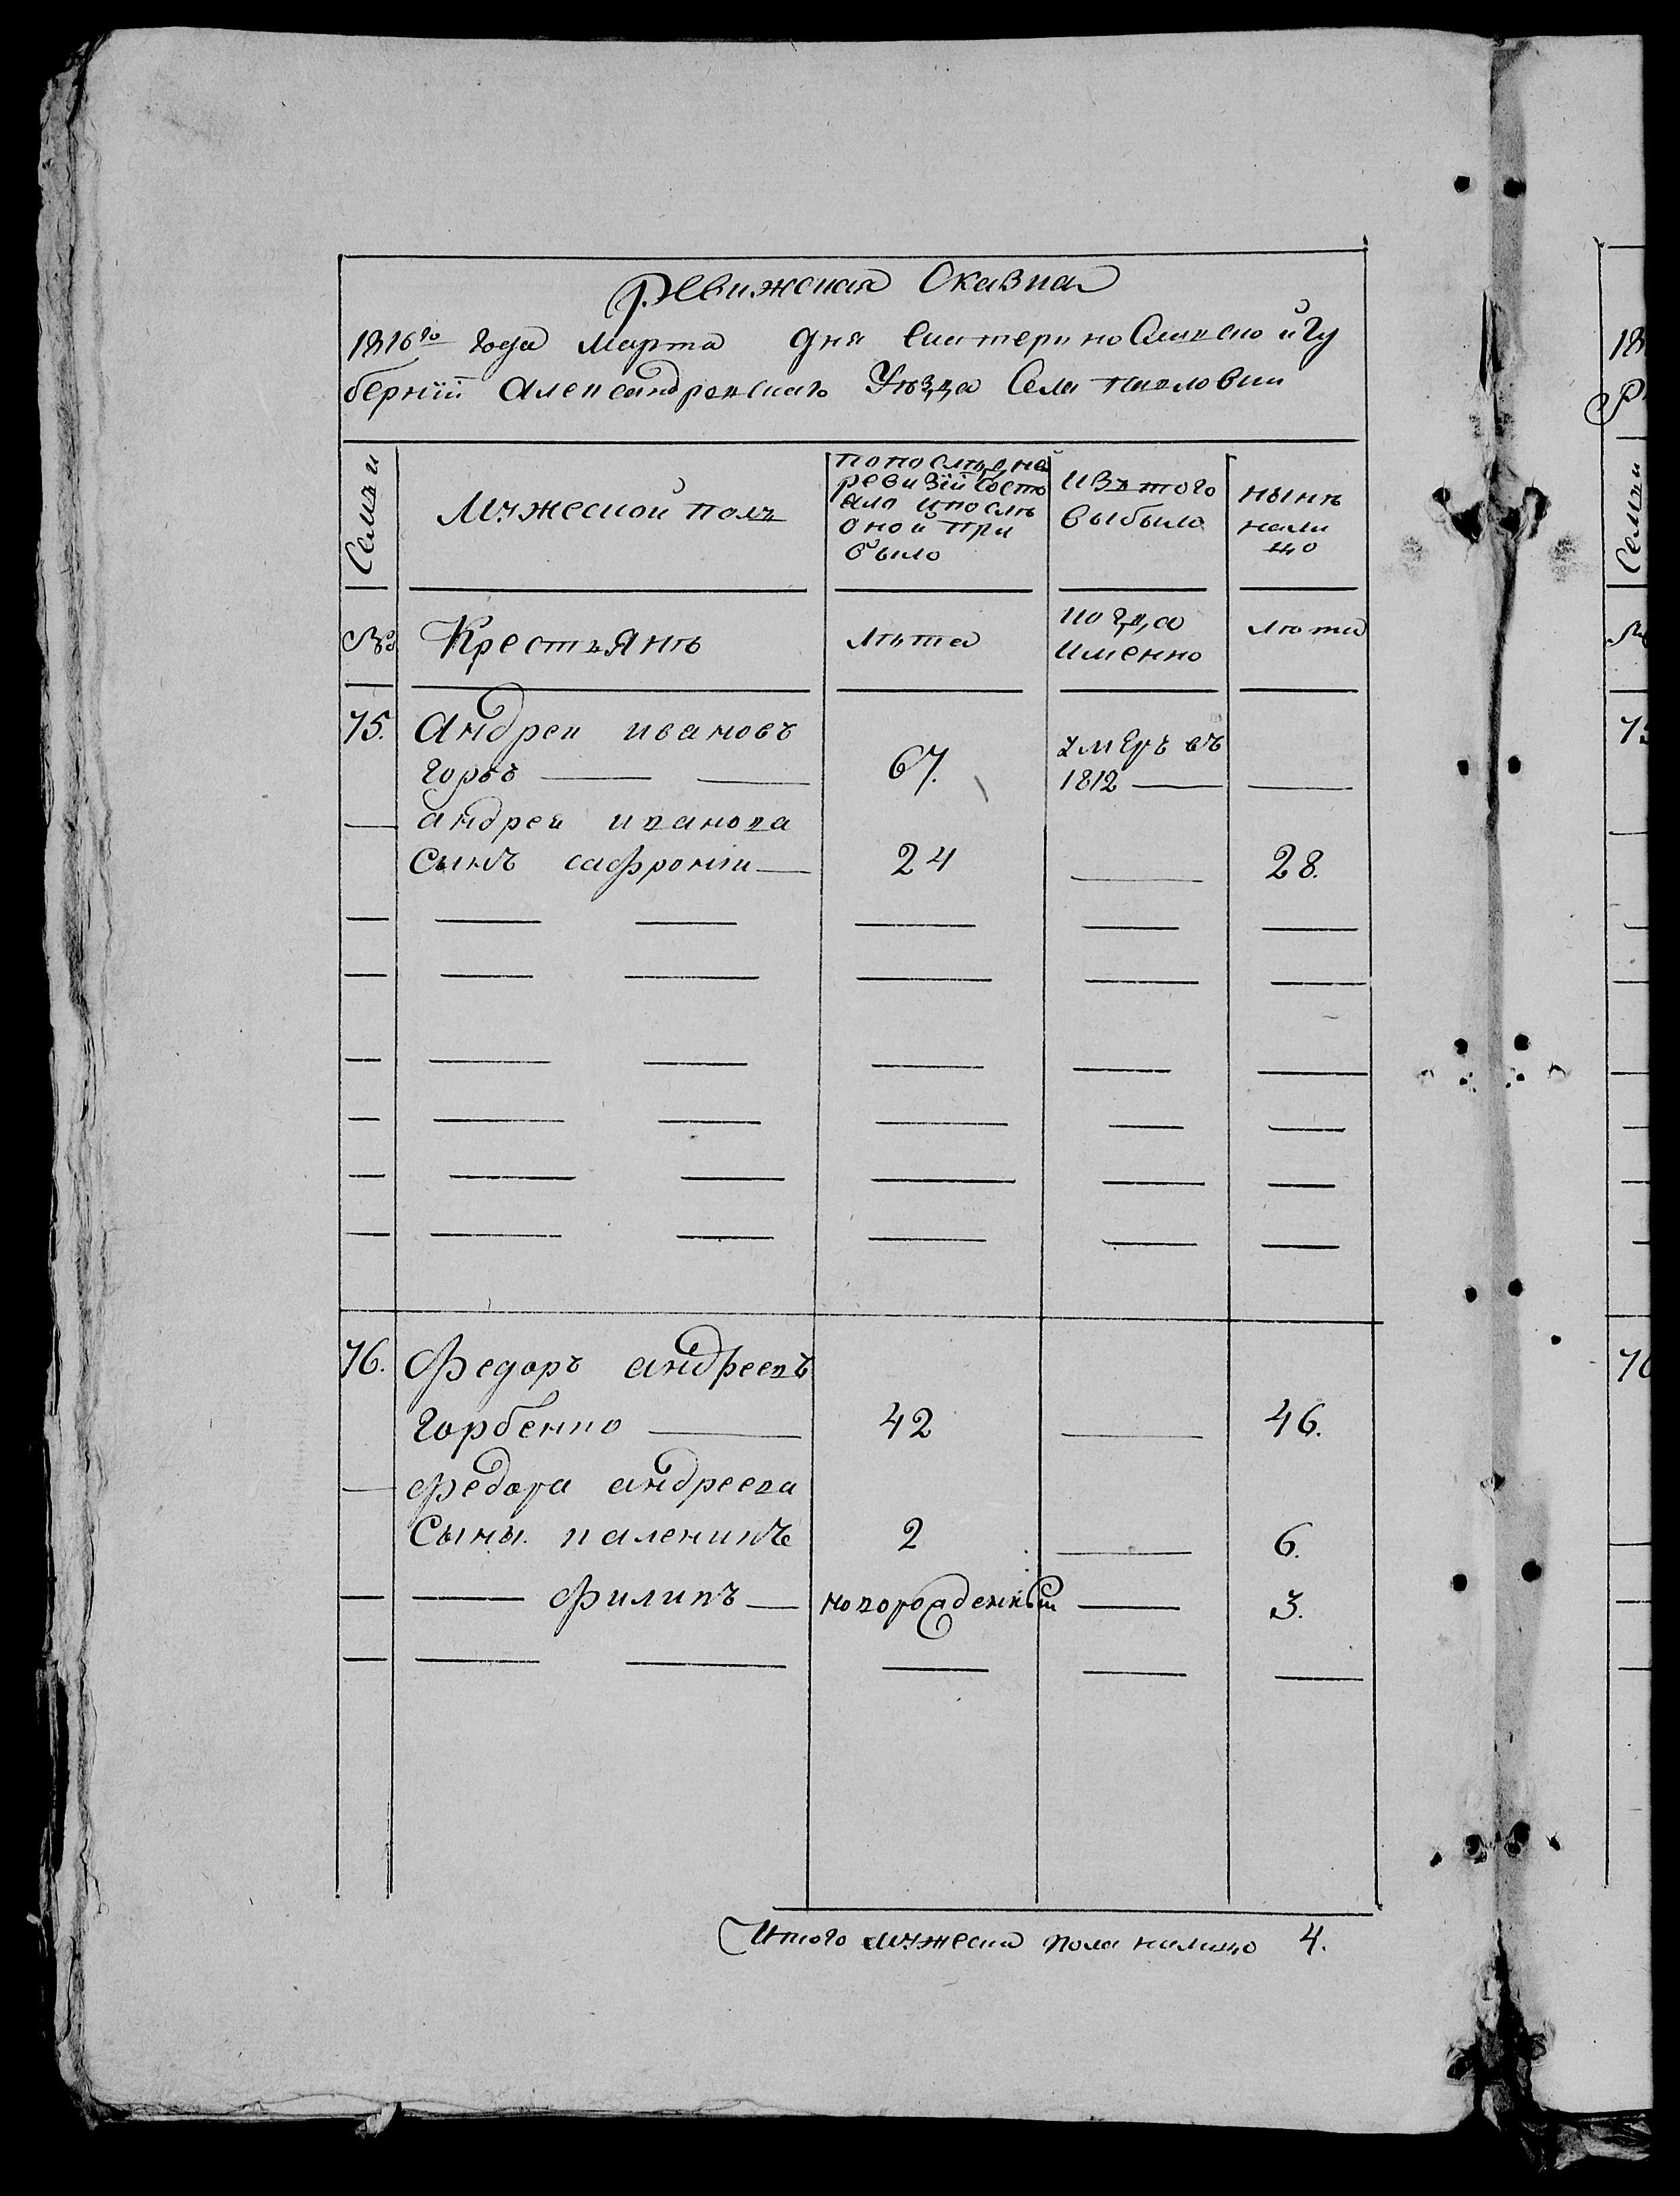 Ревижская Сказка
1816го года марта дня екатериноСлавской Гу
берніи александрскаго Уѣзда Села павловки
Семьи
Мужеской полъ
попослѣдне
ревизіи Состо
яло ипослѣ
оной при
было
Изътого
выбыло
нынѣ
нали
цо
№
Крестьянъ
лѣта
когда
именно
лѣта
75. Андреи ивановъ
горбъ 67. умеръ въ
1812
андрея иванова
Сынъ сафронии 24 28.
76. Федоръ андреевъ
Горбенко 42 46.
федора андреева
Сыны 2 6.
филипъ новорожденныи 3.
Итого мужеска пола налицо 4.
18
Р
Семьи
75
76